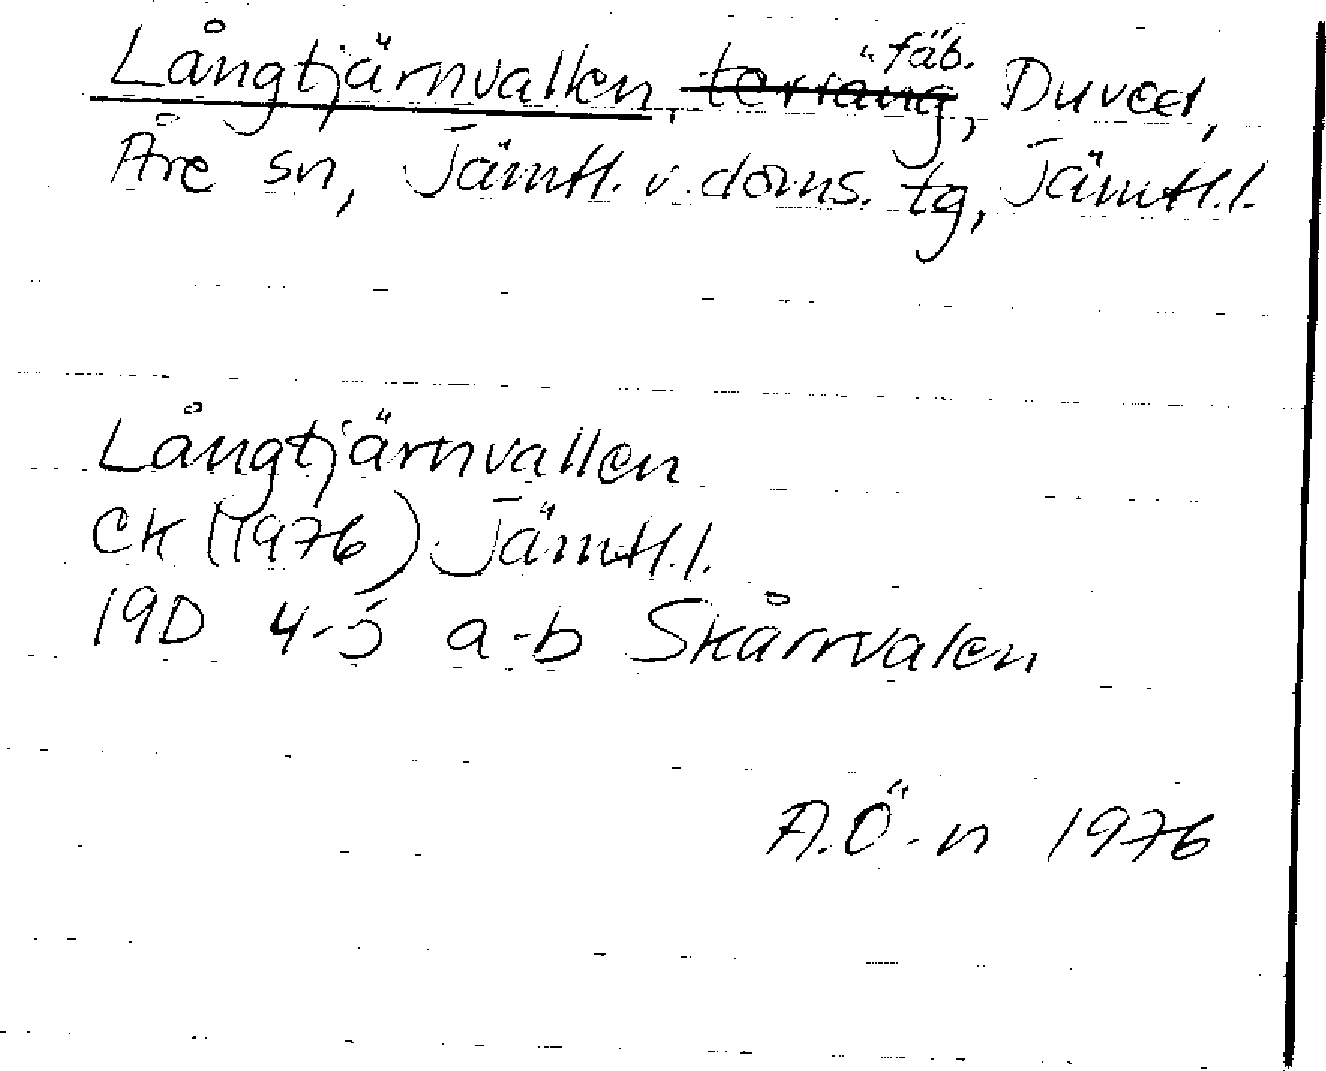 Långtjärnvallen, terräng "fäb., Duved,
Åre sn, Jämtl. v. doms. tg, Jämtl.l.
Långtjärnvallen
CK (1976) Jämtl.l.
19D 4-5 a-b Skårrvalen
A.Ö-n 1976